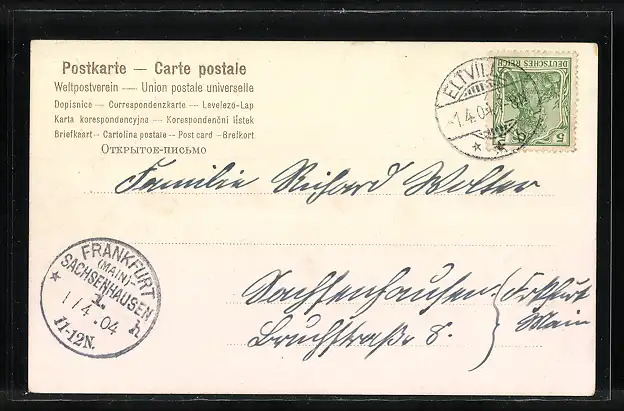 Postkarte — Carte postale
Weltpostverein — Union postale universelle
Dopisnice — Correspondenzkarte — Levelező-Lap
Karta korespondencyjna — Korespondenčni listek
Briefkaart — Cartolina postale — Post card — Brefkort
ОТКРЫТОЕ-ПИСЬМО
ELTVILLE
1.4.04
DEUTSCHES REICH
5
Familie Richard Wolter
FRANKFURT
(MAIN)-
SACHSENHAUSEN
1. h
1 1/4 .04
11-12N.
Sachsenhausen Frkfurt
Main
Bruchstraße 8.